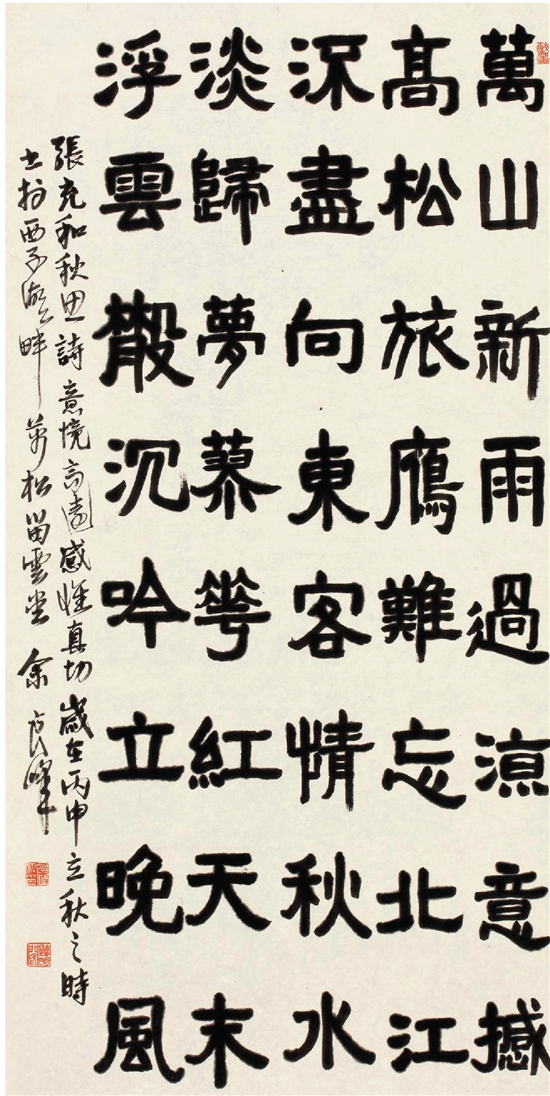 萬山新雨過涼意撼
髙松旅鴈難忘北江
深盡向東客情秋水
淡歸夢蓼花紅天末
浮雲散沉吟立晚風
張充和秋思詩意境高遠感懷真切歲在丙申立秋之時
書於西子湖畔萬松留雲堂余良峰